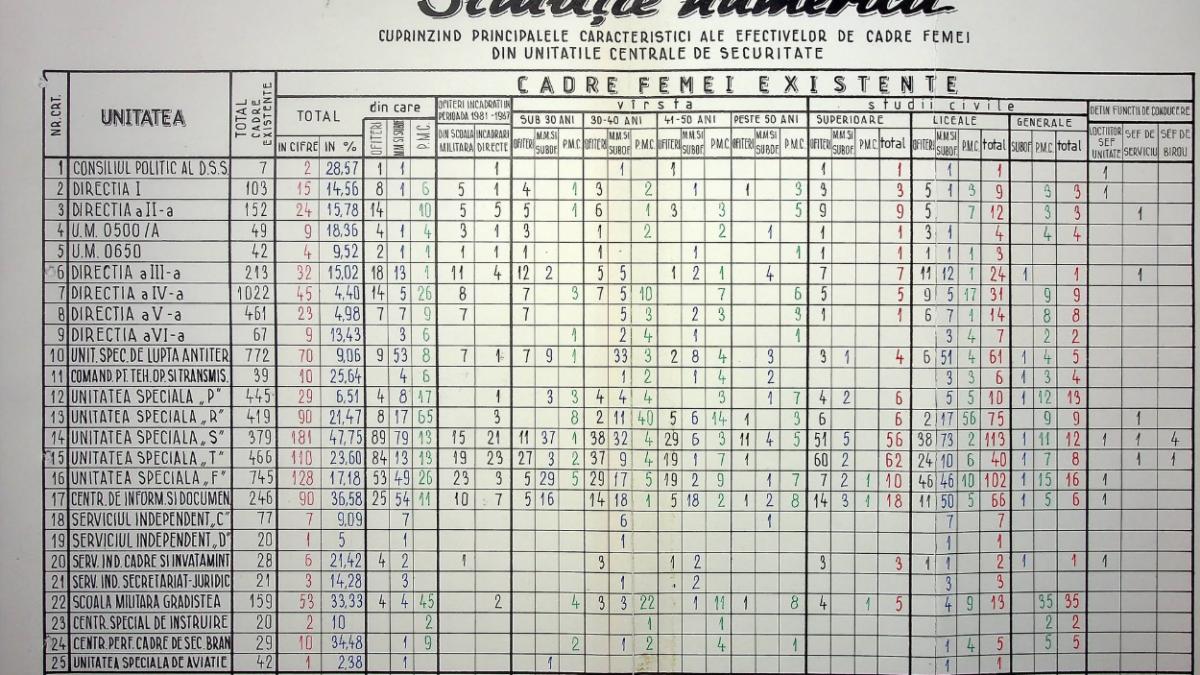 Situație numerică
CUPRINZIND PRINCIPALELE CARACTERISTICI ALE EFECTIVELOR DE CADRE FEMEI
DIN UNITATILE CENTRALE DE SECURITATE
NR.CRT. UNITATEA TOTAL CADRE EXISTENTE CADRE FEMEI EXISTENTE
TOTAL din care OFITERI INCADRATI IN PERIOADA 1981-1987 vîrsta studii civile DETIN FUNCTII DE CONDUCERE
SUB 30 ANI 30-40 ANI 41-50 ANI PESTE 50 ANI SUPERIOARE LICEALE GENERALE
IN CIFRE IN % OFITERI M.M SI SUBOF. P.M.C. DIN SCOALA MILITARA INCADRARI DIRECTE OFITERI M.M SI SUBOF. P.M.C. OFITERI M.M SI SUBOF. P.M.C. OFITERI M.M SI SUBOF. P.M.C. OFITERI M.M SI SUBOF. P.M.C. OFITERI M.M SI SUBOF. P.M.C. total OFITERI M.M SI SUBOF. P.M.C. total SUBOF. P.M.C. total LOCTIITOR SEF UNITATE SEF DE SERVICIU SEF DE BIROU
1 CONSILIUL POLITIC AL D.S.S. 7 2 28,57 1 1 1 1 1 1 1 1 1 1
2 DIRECTIA I 103 15 14,56 8 1 6 5 1 4 1 3 2 1 1 3 3 3 5 1 3 9 3 3 1
3 DIRECTIA a II-a 152 24 15,78 14 10 5 5 5 1 6 1 3 3 5 9 9 5 7 12 3 3 1
4 U.M. 0500/A 49 9 18,36 4 1 4 3 1 3 1 2 2 1 1 1 3 1 4 4 4
5 U.M. 0650 42 4 9,52 2 1 1 1 1 1 1 1 1 1 1 1 1 1 3
6 DIRECTIA a III-a 213 32 15,02 18 13 1 11 4 12 2 5 5 1 2 1 4 7 7 11 12 1 24 1 1 1
7 DIRECTIA a IV-a 1022 45 4,40 14 5 26 8 7 3 7 5 10 7 6 5 5 9 5 17 31 9 9
8 DIRECTIA a V-a 461 23 4,98 7 7 9 7 7 5 3 2 3 3 1 1 6 7 1 14 8 8
9 DIRECTIA a VI-a 67 9 13,43 3 6 1 2 4 1 1 3 4 7 2 2
10 UNIT. SPEC. DE LUPTA ANTITER 772 70 9,06 9 53 8 7 1 7 9 1 33 3 2 8 4 3 3 1 4 6 51 4 61 1 4 5
11 COMAND. PT. TEH. OP. SI TRANSMIS. 39 10 25,64 4 6 1 2 1 4 2 3 3 6 1 3 4
12 UNITATEA SPECIALA „P" 445 29 6,51 4 8 17 1 3 3 4 4 4 3 1 7 4 2 6 5 5 10 1 12 13
13 UNITATEA SPECIALA „R" 419 90 21,47 8 17 65 3 8 2 11 40 5 6 14 1 3 6 6 2 17 56 75 9 9 1
14 UNITATEA SPECIALA „S" 379 181 47,75 89 79 13 15 21 11 37 1 38 32 4 29 6 3 11 4 5 51 5 56 38 73 2 113 1 11 12 1 1 4
15 UNITATEA SPECIALA „T" 466 110 23,60 84 13 13 19 23 27 3 2 37 9 4 19 1 7 1 60 2 62 24 10 6 40 1 7 8 1 1
16 UNITATEA SPECIALA „F" 745 128 17,18 53 49 26 23 3 5 29 5 29 17 5 19 2 9 1 7 7 2 1 10 46 46 10 102 1 15 16 1
17 CENTR. DE INFORM. SI DOCUMEN. 246 90 36,58 25 54 11 10 7 5 16 14 18 1 5 18 2 1 2 8 14 3 1 18 11 50 5 66 1 5 6 1
18 SERVICIUL INDEPENDENT „C" 77 7 9,09 7 6 1 7 7
19 SERVICIUL INDEPENDENT „D" 20 1 5 1 1 1 1
20 SERV. IND. CADRE SI INVATAMINT 28 6 21,42 4 2 1 3 1 2 3 3 1 1 2 1 1 1
21 SERV. IND. SECRETARIAT-JURIDIC 21 3 14,28 3 1 2 3 3
22 SCOALA MILITARA GRADISTEA 159 53 33,33 4 4 45 2 4 3 3 22 1 11 1 8 4 1 5 4 9 13 35 35
23 CENTR. SPECIAL DE INSTRUIRE 20 2 10 2 1 1 2 2
24 CENTR. PERF. CADRE DE SEC. BRAN 29 10 34,48 1 9 2 1 2 4 1 1 4 5 5 5
25 UNITATEA SPECIALA DE AVIATIE 42 1 2,38 1 1 1 1